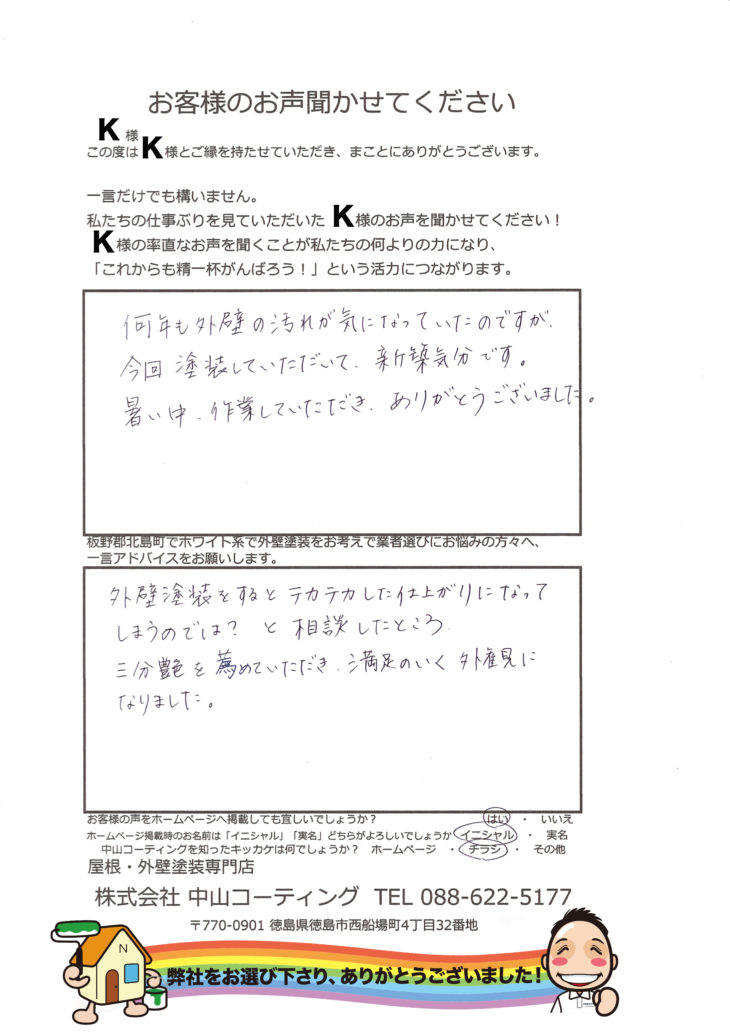 お客様のお声聞かせてください
K 様
この度は K 様とご縁を持たせていただき、まことにありがとうございます。
一言だけでも構いません。
私たちの仕事ぶりを見ていただいた K様のお声を聞かせてください！
K様の率直なお声を聞くことが私たちの何よりの力になり、
「これからも精一杯がんばろう！」という活力につながります。
何年も外壁の汚れが気になっていたのですが、
今回 塗装していただいて、新築気分です。
暑い中、作業していただき、ありがとうございました。
板野郡北島町でホワイト系で外壁塗装をお考えで業者選びにお悩みの方々へ、
一言アドバイスをお願いします。
外壁塗装をするとテカテカした仕上がりになって
しまうのでは？と相談したところ、
三分艶を薦めていただき、満足のいく外観に
なりました。
お客様の声をホームページへ掲載しても宜しいでしょうか？ はい ・ いいえ
ホームページ掲載時のお名前は「イニシャル」「実名」どちらがよろしいでしょうか イニシャル ・ 実名
中山コーティングを知ったキッカケは何でしょうか？ ホームページ ・ チラシ ・ その他
屋根・外壁塗装専門店
株式会社 中山コーティング TEL 088-622-5177
〒770-0901 徳島県徳島市西船場町4丁目32番地
N
弊社をお選び下さり、ありがとうございました！